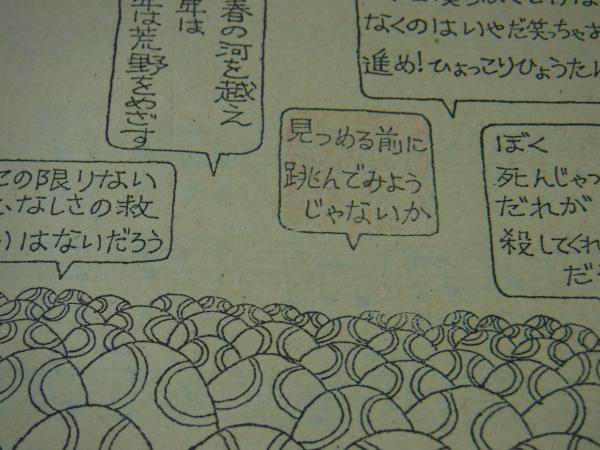 春の河を越え
年は
年は荒野をめざす
なくのはいやだ笑っちゃお
進め!ひょっこりひょうたん
見つめる前に
跳んでみよう
じゃないか
の限りない
なしさの救
はないだろう
ぼく
死んじゃっ
だれが
殺してくれ
だ